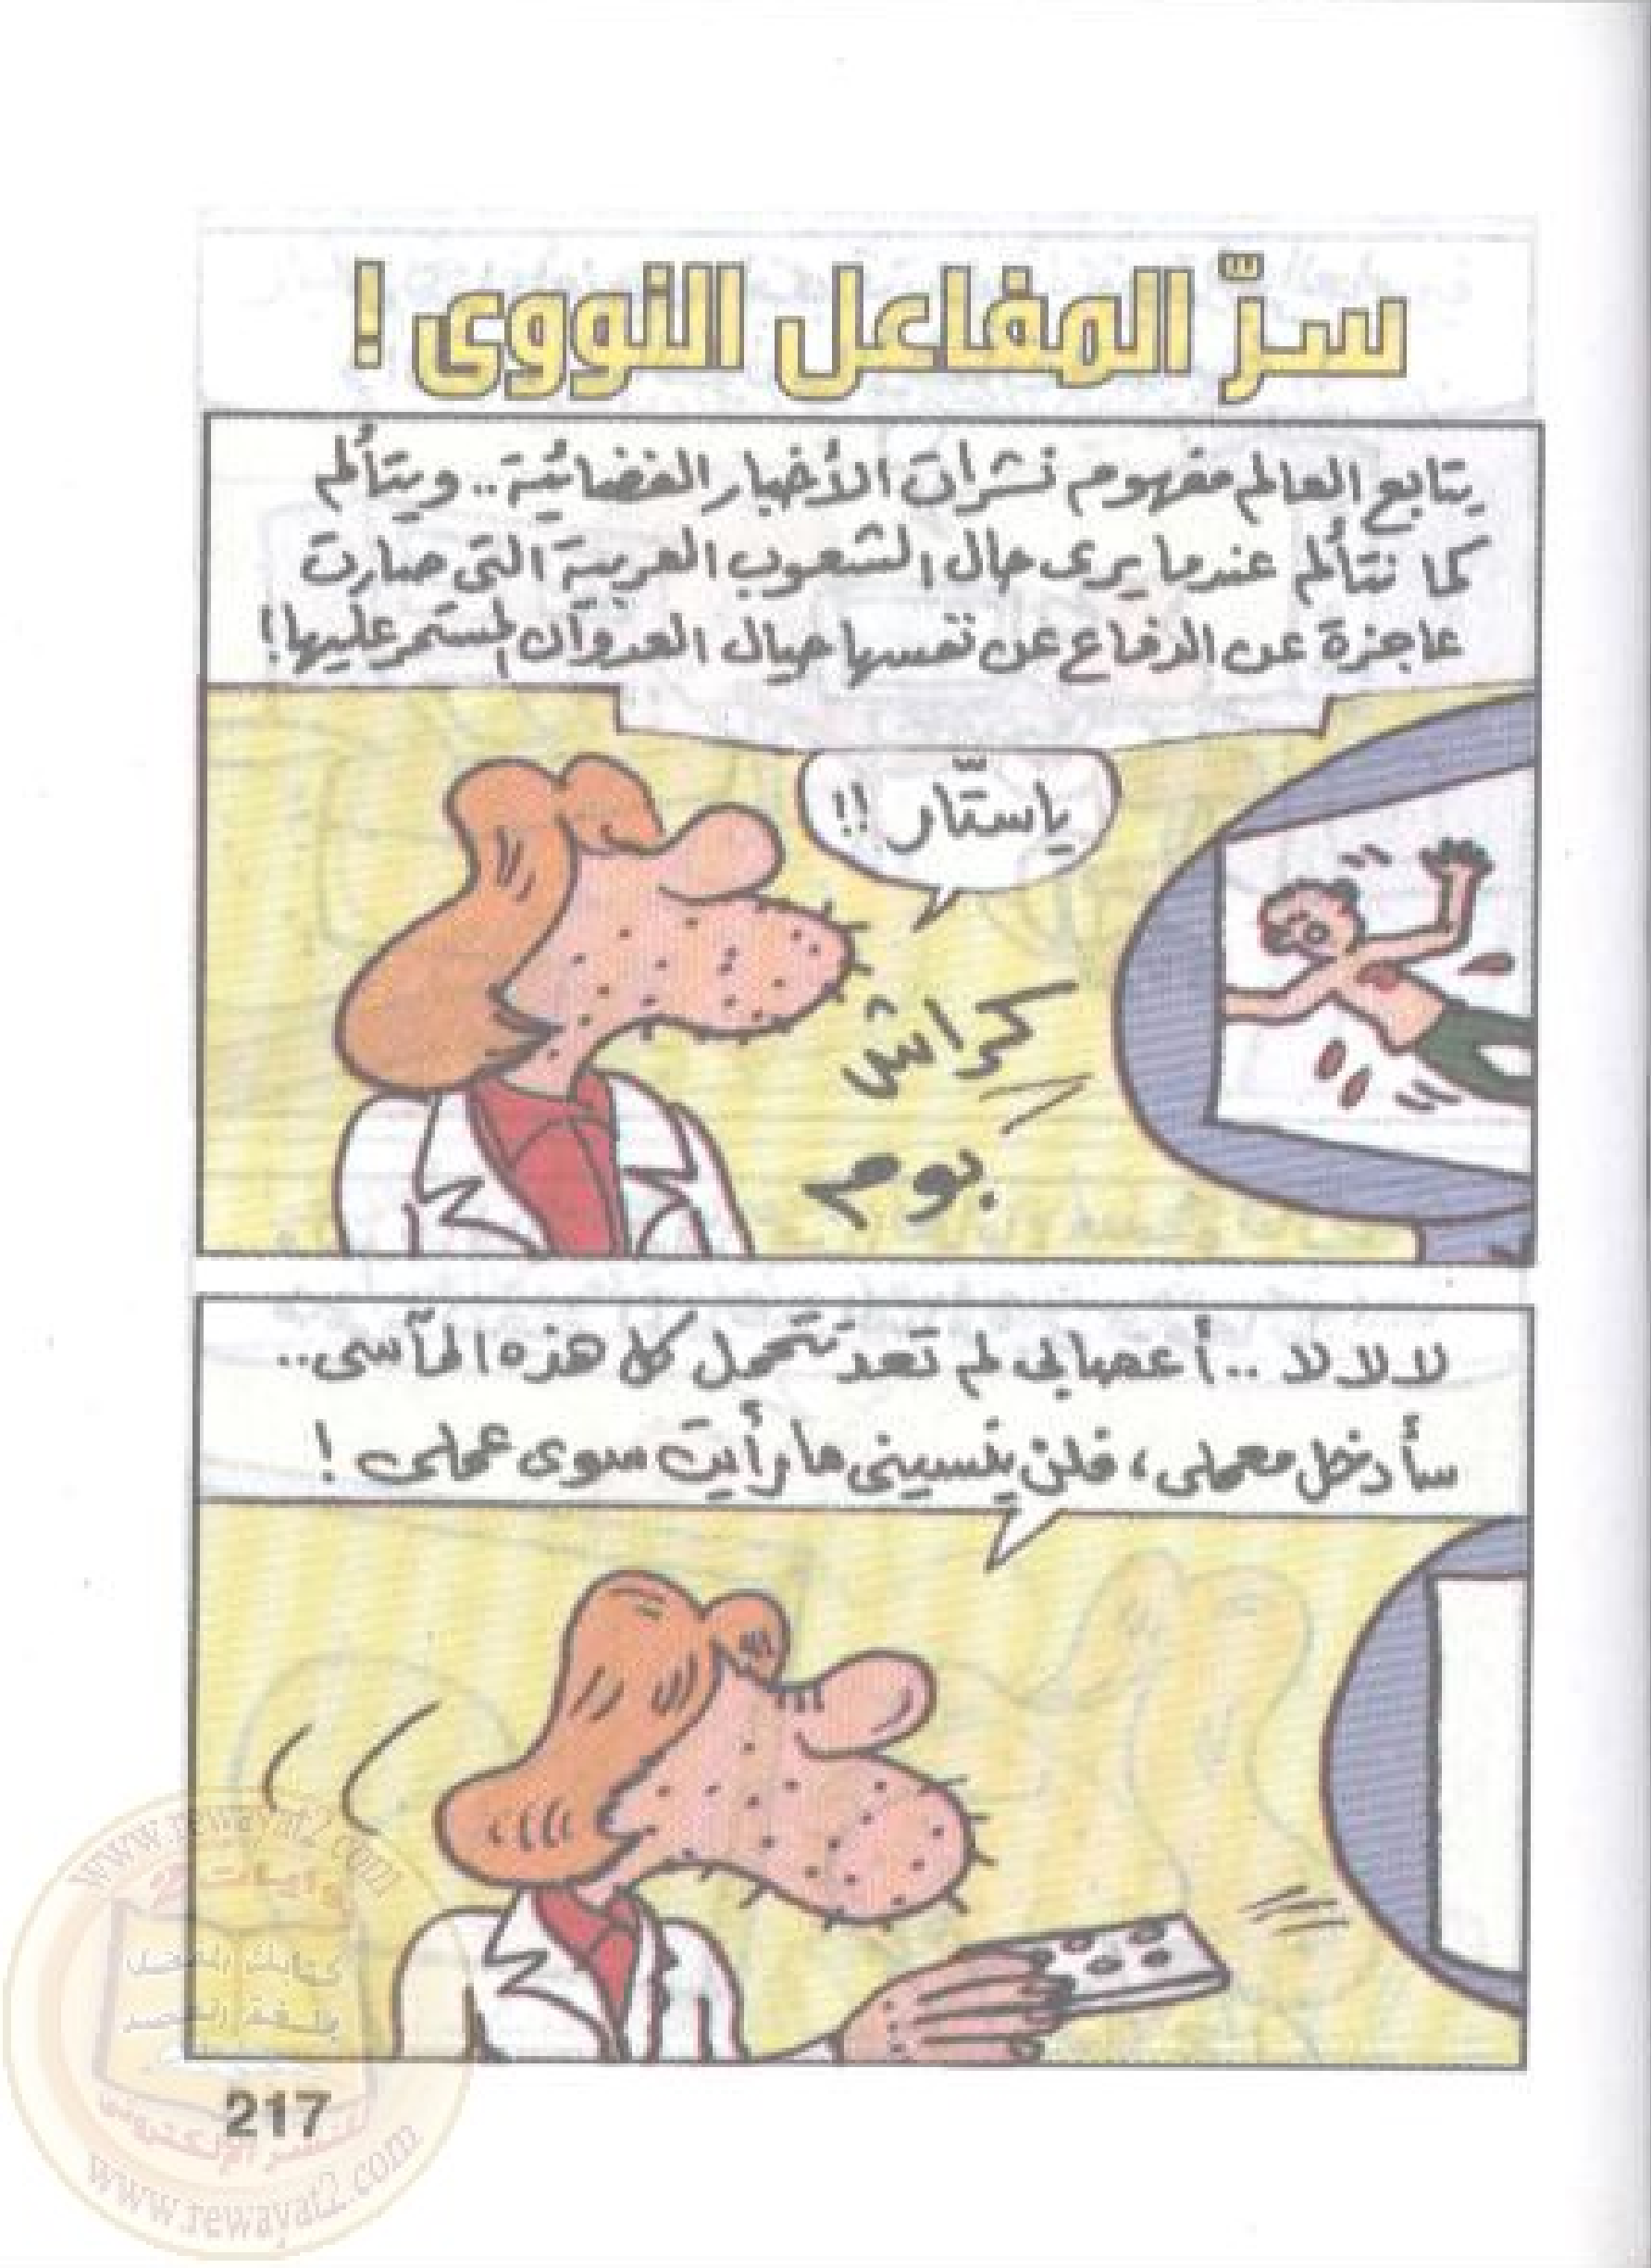 سرّ المفاعل النووى !
يتابع العالم مفهوم نشرات الأخبار الفضائية.. ويتألم
كما نتألم عندما يرى حال الشعوب العربية التى صارت
عاجزة عن الدفاع عن نفسها حيال العدوان المستمر عليها!
ياستّار !!
كراش
بوم
لا لا لا .. أعصابى لم تعد تتحمل كل هذه المآسى..
سأدخل معملى، فلن ينسينى ما رأيت سوى عملى !
www.rewayat2.com
روايات 2
217
www.rewayat2.com